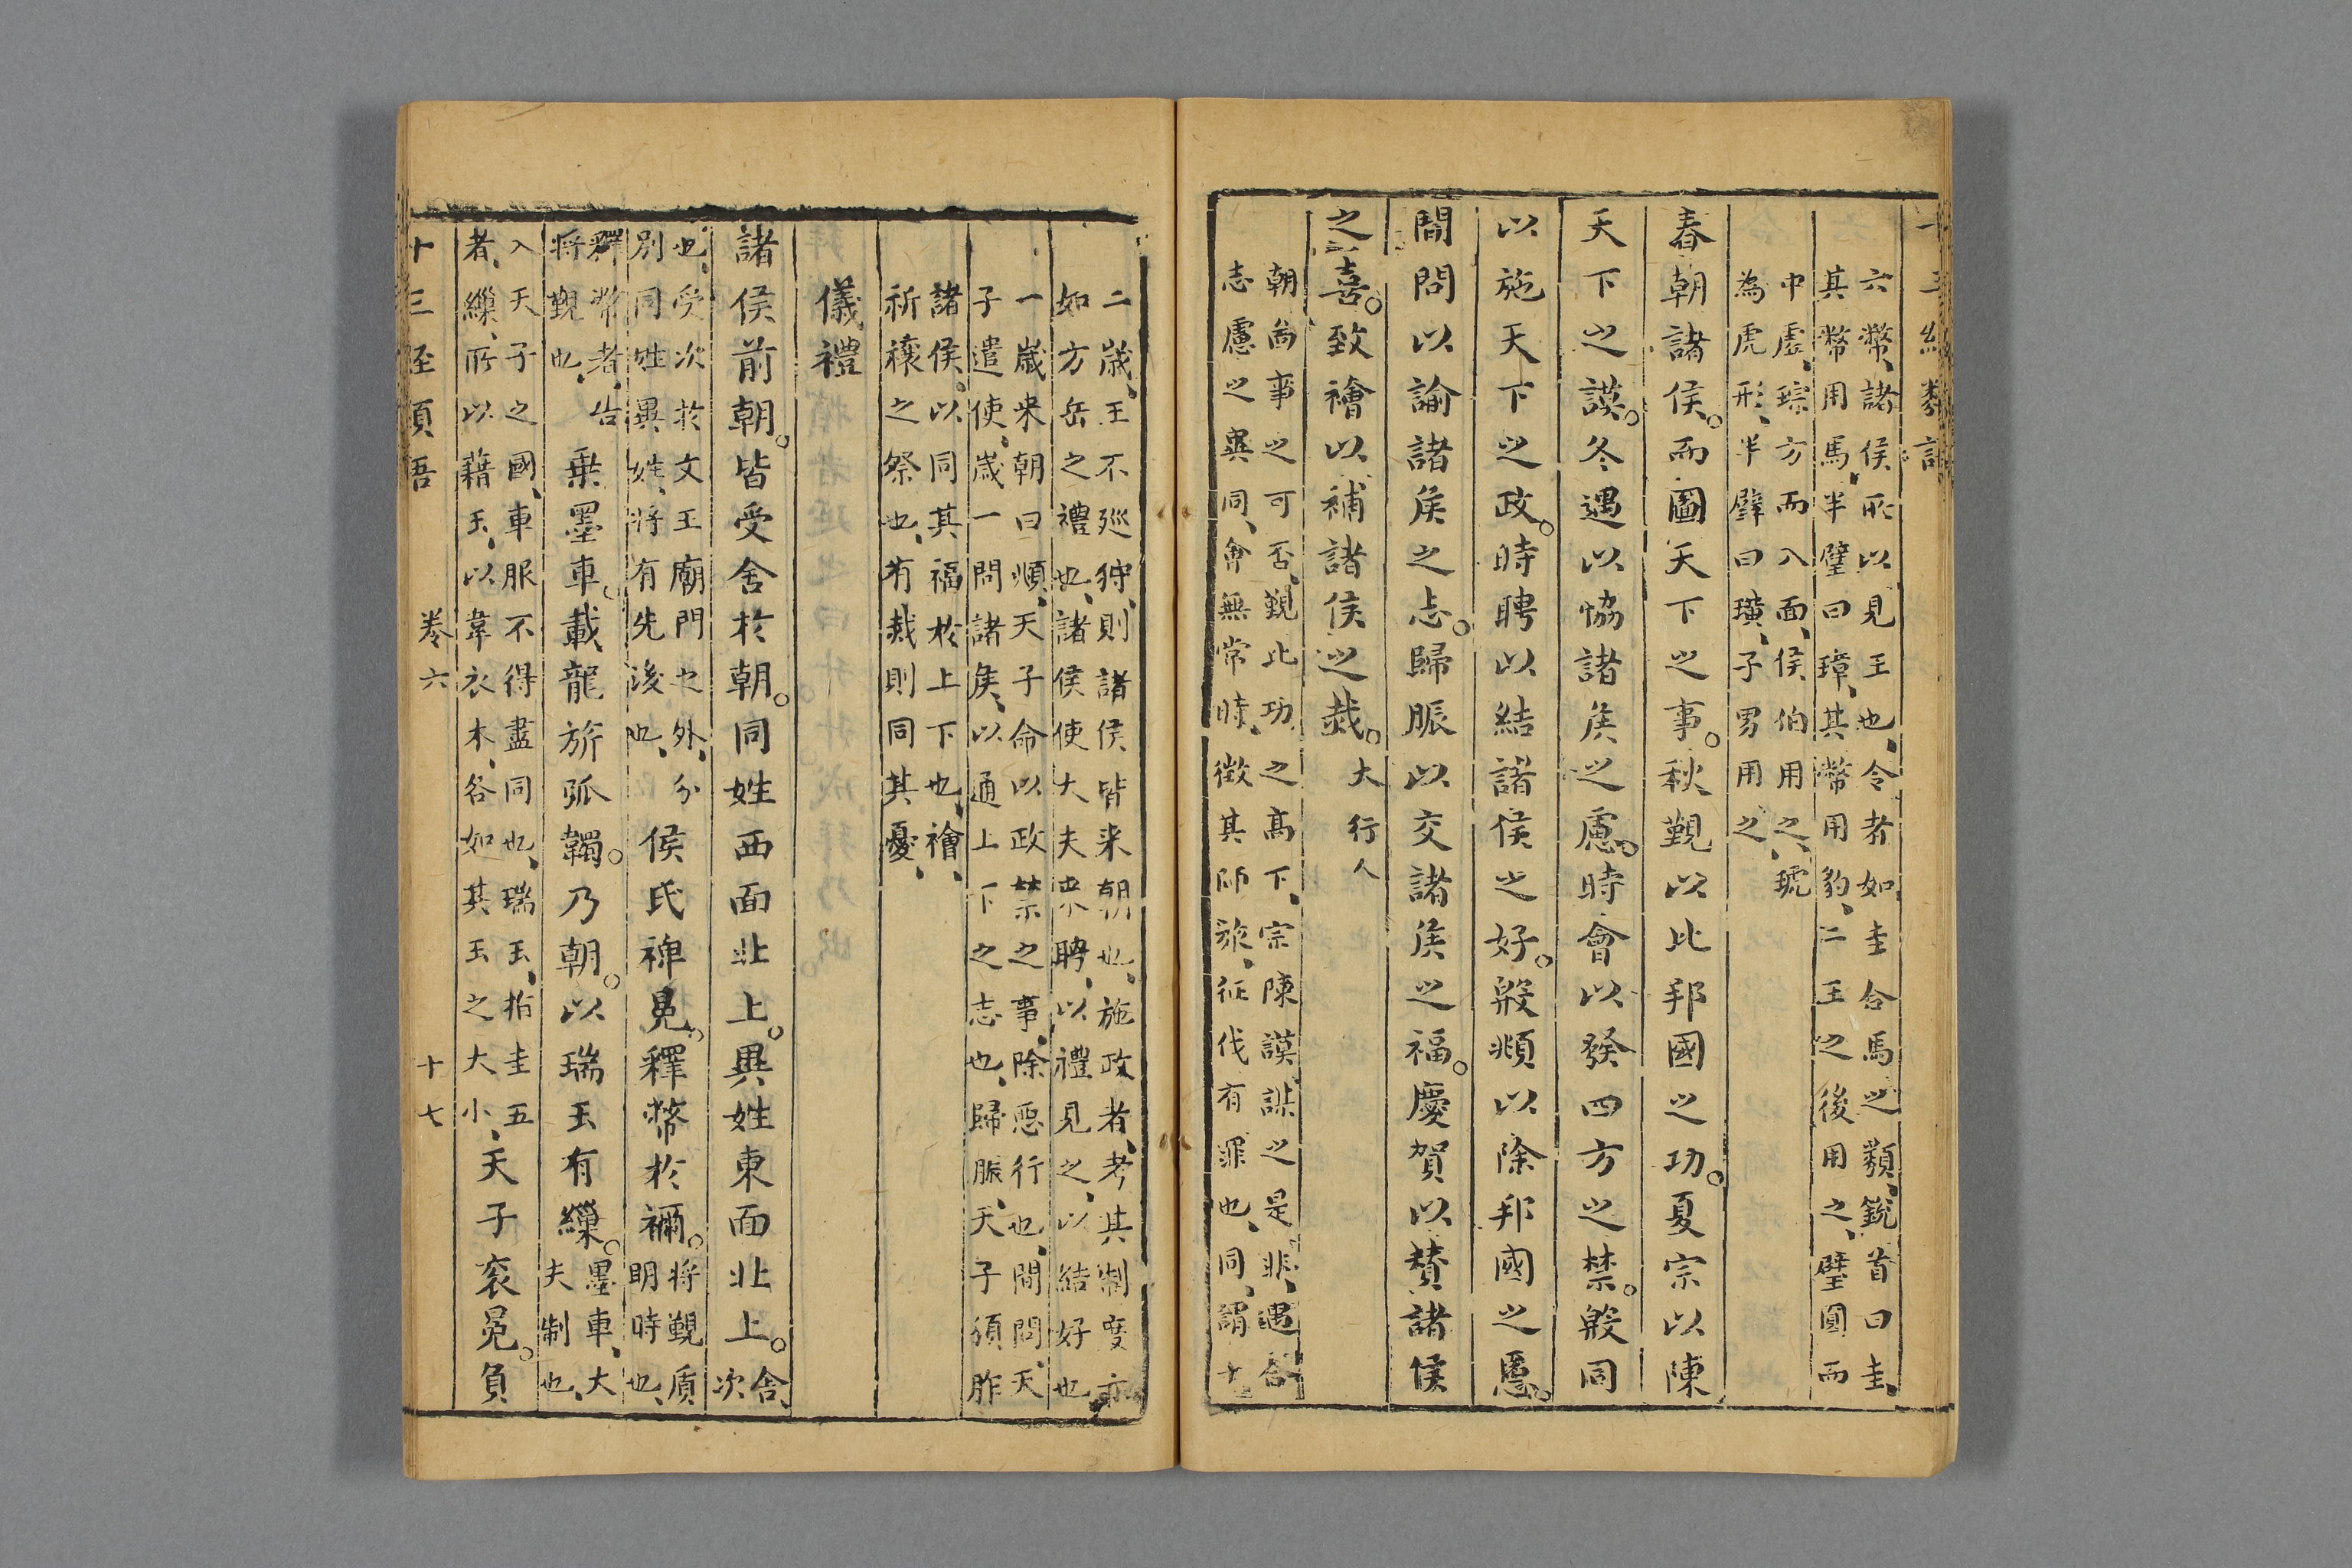 六幣、諸侯所以見王也、令者如圭合馬之類、銳首曰圭、
其幣用馬、半璧曰璋、其幣用豹、二王之後用之、璧圓而
中虛、琮方而八面、侯伯用之、琥
為虎形、半璧曰璜、子男用之
春朝諸侯。而圖天下之事。秋覲以比邦國之功。夏宗以陳
天下之謨。冬遇以協諸侯之慮。時會以發四方之禁。殷同
以施天下之政。時聘以結諸侯之好。殷覜以除邦國之慝。
間問以諭諸侯之志。歸脤以交諸侯之福。慶賀以贊諸侯
之喜。致禬以補諸侯之烖。大行人
朝啚事之可否、覲比功之高下、宗陳謨謀之是非、遇合
志慮之異同、會無常時、徴其師旅、征伐有罪也、同、謂十
二歲、王不廵狩、則諸侯皆來朝也、施政者、考其制度亦
如方岳之禮也、諸侯使大夫來聘、以禮見之、以結好也
一歲來朝曰頫、天子命以政禁之事、除惡行也、間問、天
子遣使、歲一問諸侯、以通上下之志也、歸脤、天子頒胙
諸侯、以同其福於上下也、禬、
祈禳之祭也、有烖則同其憂、
儀禮
諸侯前朝。皆受舍於朝。同姓西面北上。異姓東面北上。舍、次
也、受次於文王廟門之外、分
別同姓異姓、將有先後也、
侯氏裨冕。釋幣於禰。將覲質
明時也、
釋幣者、告
將覲也、
乗墨車。載龍旂弧韣。乃朝。以瑞玉有繅。墨車、大
夫制也、
入天子之國、車服不得盡同也、瑞玉、指圭五
者、繅、所以藉玉、以韋衣木、各如其玉之大小、
天子衮冕。負
十三經類語
卷六
十七